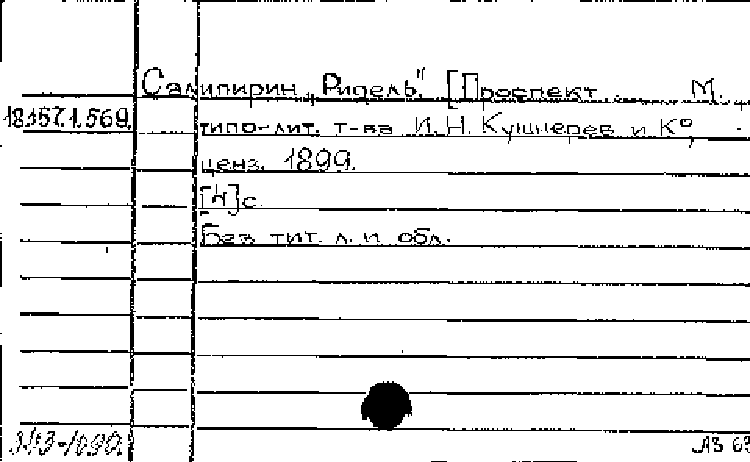 Салипирин „Ридель". [Проспект. М.
18.157.1.569.
типо-лит. т-ва И. Н. Кушнерев и К°,
ценз. 1899.
[4]с
Без тит. л. и обл.
АЗ 63